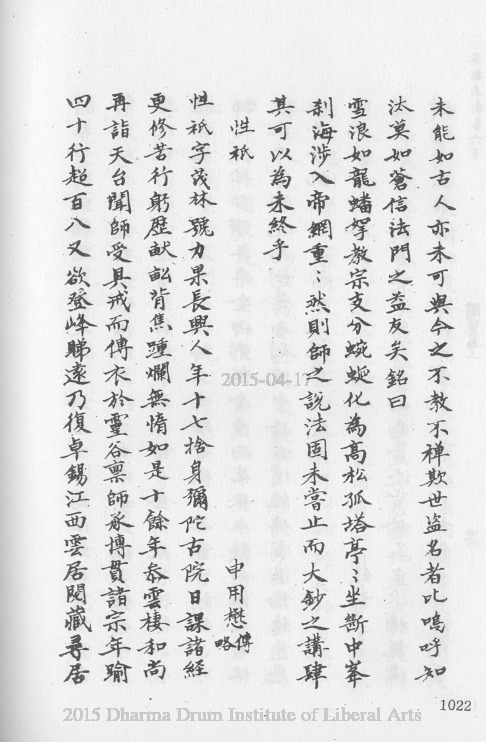 未能如古人亦未可與今之不教不禪欺世盜名者比嗚呼知
汰莫如蒼信法門之益友矣銘曰
雪浪如龍蟠孥教宗支分蜿蜒化為高松孤塔亭〻坐斷中峯
剎海涉入帝網重〻然則師之說法固未嘗止而大鈔之講肆
其可以為未終乎
性祇
申用懋傳略
性祇字茂林號力果長興人年十七捨身彌陀古院日課諸經
更修苦行躬歷畎畆背焦踵爛無惰如是十餘年叅雲棲和尚
再詣天台聞師受具戒而傳衣於靈谷禀師承博貫諸宗年踰
四十行超百八又欲登峰睇遠乃復卓錫江西雲居閱藏尋居
1022
2015-04-17
2015 Dharma Drum Institute of Liberal Arts